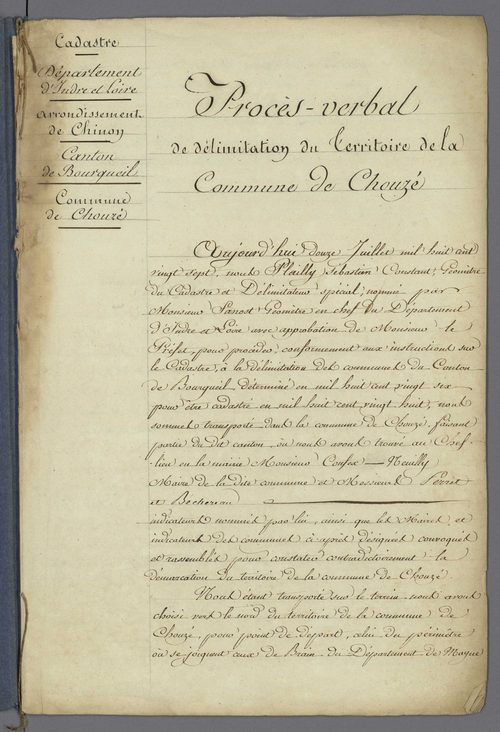 Cadastre
Département
d'Indre et Loire
arrondissement
de Chinon
Canton
de Bourgueil
Commune
de Chouzé
Procès-verbal
de délimitation du territoire de la
Commune de Chouzé
Aujourd'hui douze Juillet mil huit cent
vingt sept, nous Plailly Sebastien Constant, Géomètre
du Cadastre et Délimitateur spécial, nommé par
Monsieur Géomètre en chef du Département
d'Indre et Loire avec approbation de Monsieur le
Préfet, pour procéder, conformément aux instructions sur
le Cadastre, à la délimitation des communes du Canton
de Bourgueil, déterminé en mil huit cent vingt six
pour être cadastré en mil huit cent vingt huit, nous
sommes transporté dans la commune de Chouzé, faisant
partie du dit canton, où nous avons trouvé au Chef
-lieu en la mairie Monsieur
Maire de la dite commune et Messieurs Perret
et
indicateurs nommés par lui, ainsi que les Maires et
indicateurs des communes ci après désignées convoqués
et rassemblés pour constater contradictoirement la
démarcation du territoire de la commune de Chouzé.
Nous étant transporté sur le terrain nous avons
choisi vers le nord du territoire de la commune de
Chouzé, pour point de départ, celui du périmètre
où se joignent ceux de Brain du Département de Mayne